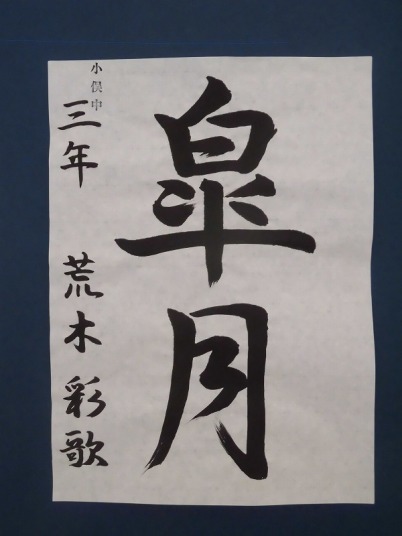 皐月
小俣中
三年 荒木彩歌